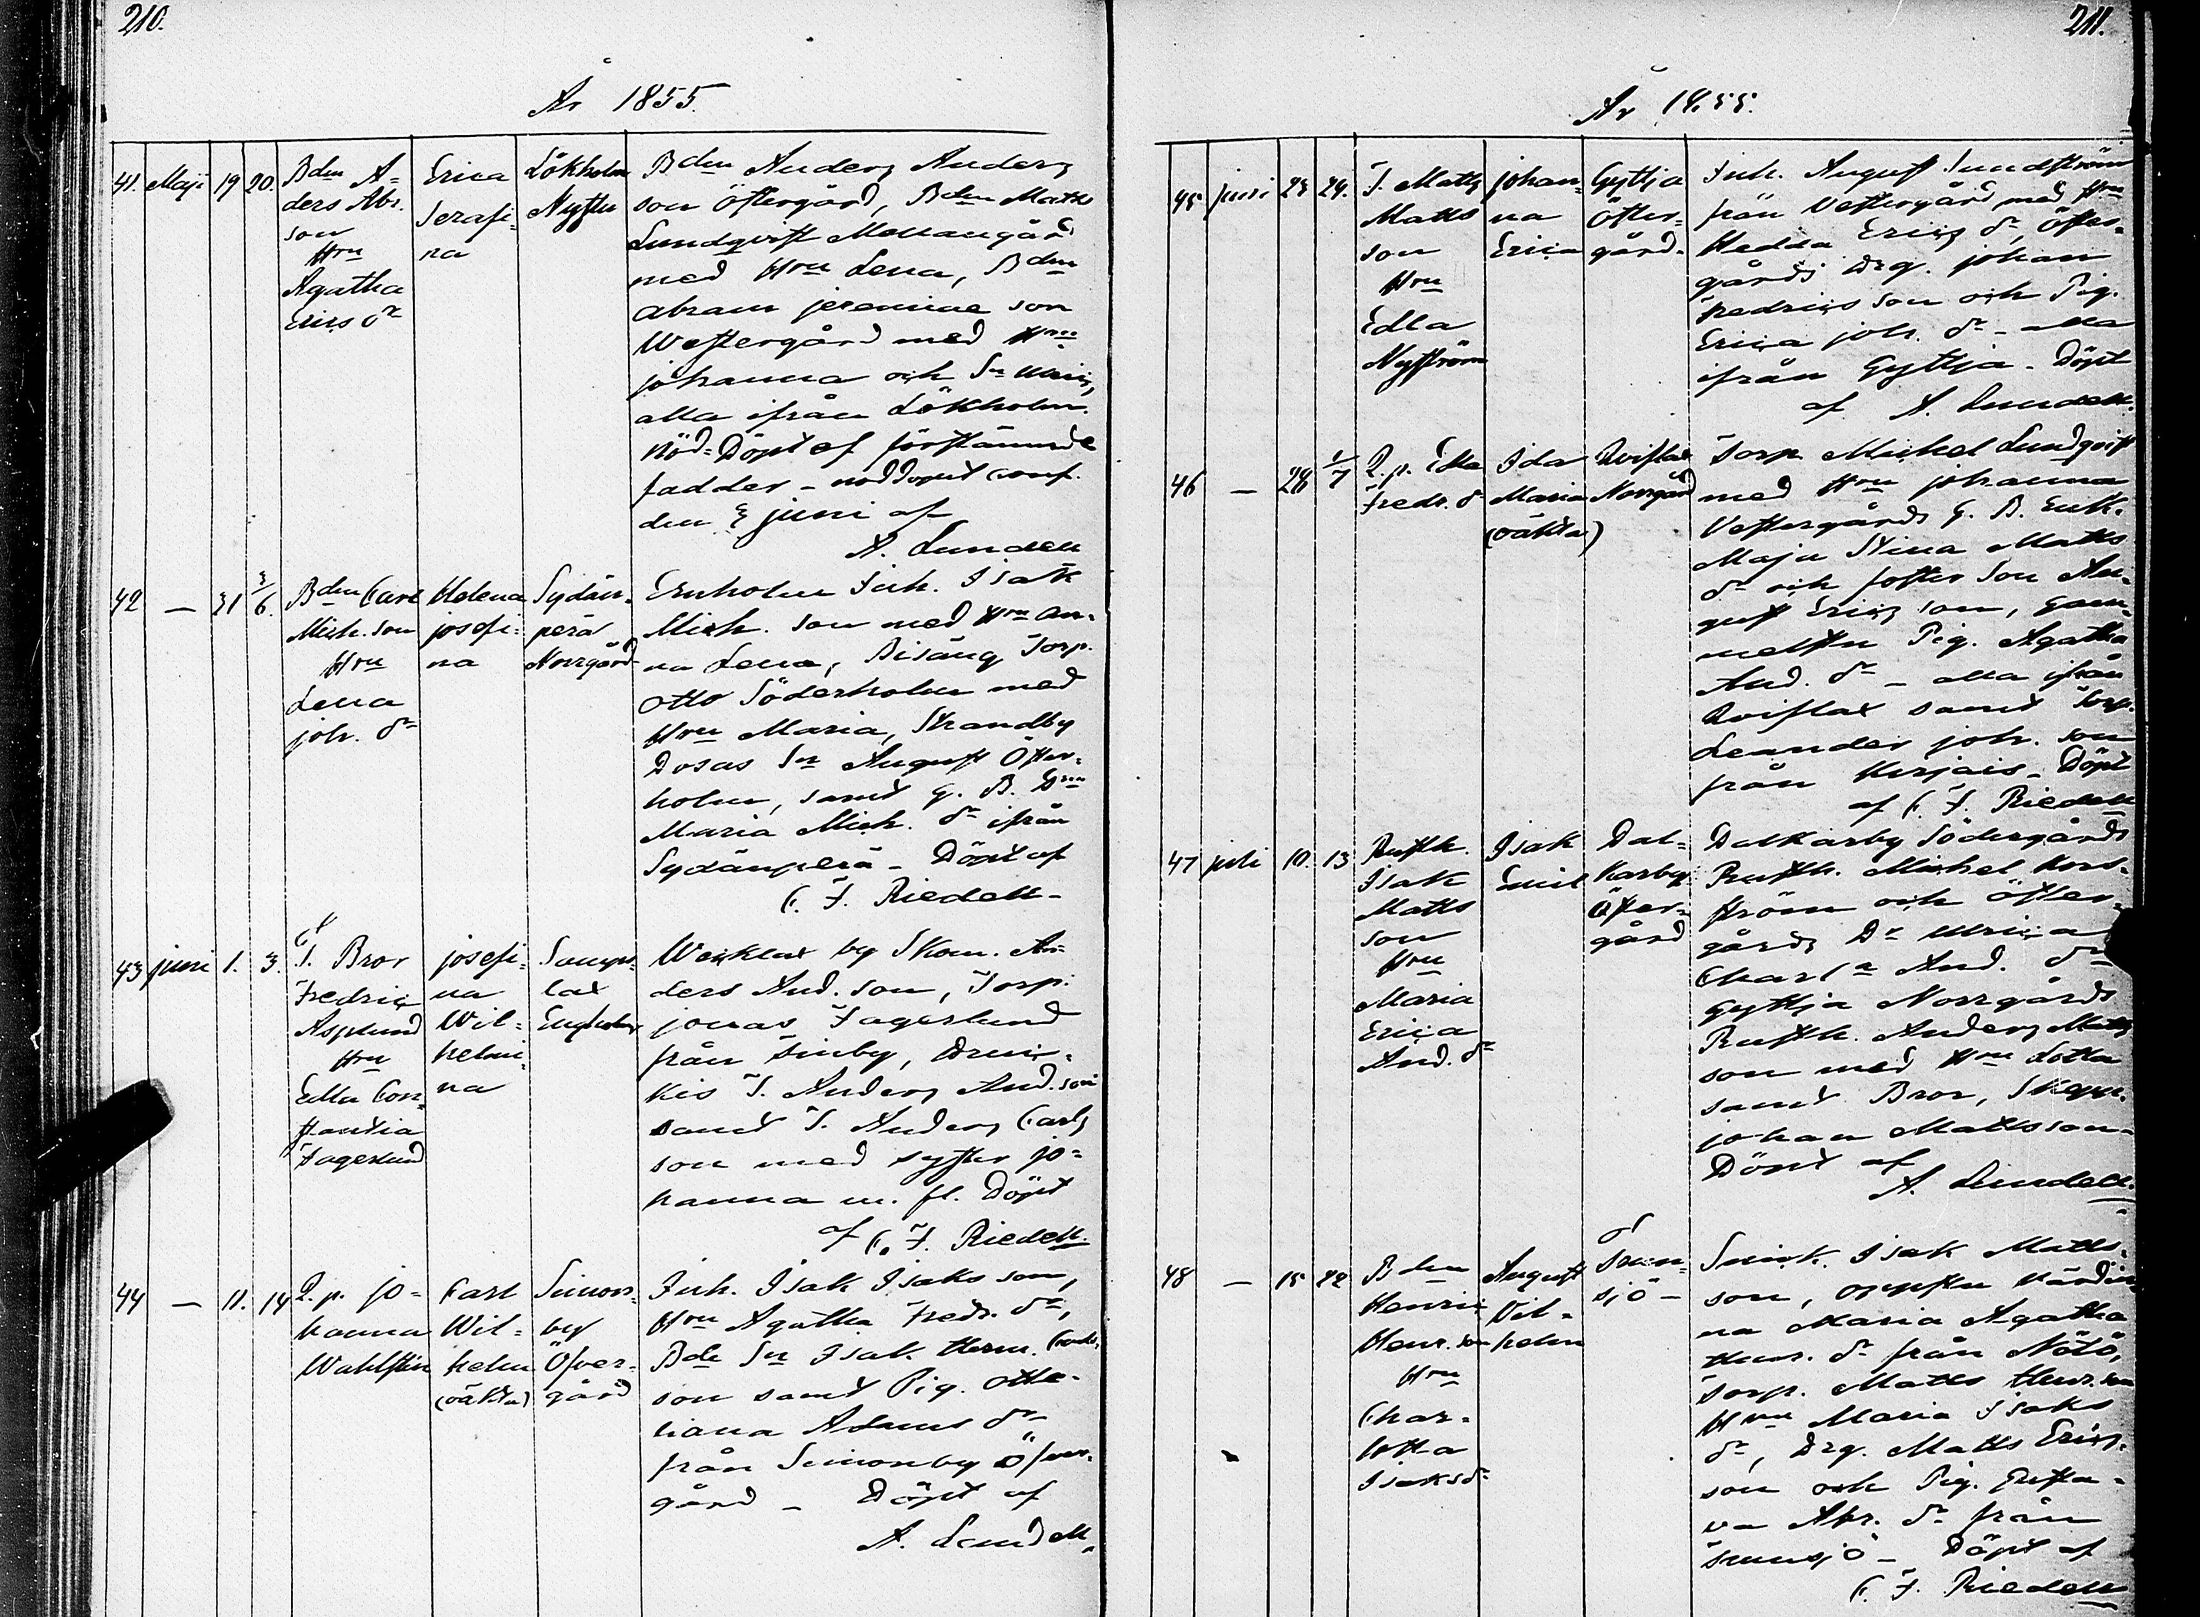 210.
År 1855.
41. Maji 19 20.
Bdm A=
ders Abr.
son
Hru
Agatha
Erics dr
Erica
Serafi=
na
Lökholm
Nystu
Bdm Anders Anders
son Östergård, Bdm Matts
Lundqvist Mellangård
med Hru Lena, Bdm
Abram jeremiæ son
Westergård med Hru
johanna och Sn
alla ifrån Lökholm.
Nöd=Döpt af förstnämnde
fadder – noddopet conf.
den 3 juni af
A. Lundell
42 — 31 3/6.
Bdm Carl
Mich. son
Hru
Lena
joh. dr
Helena
josefi=
na
Sydän=
perä
Norrgård
Ernholm Inh. Isak
Mich. son med Hru An=
na Lena, Bisäng Torp.
Otto Söderholm med
Hru Maria, Strandby
Dosas Sn August Öster=
holm, samt G. B.
Maria Mich. dr ifrån
Sydänperä – Döpt af
C. F. Riedell –
43 juni 1. 3.
T. Bror
Fredric
Asplund
Hru
Edla Con=
stantia
Fagerlund
josefi=
na
Wil=
helmi=
na
Sunn=
lax
Engholm
Wexlax by Skom. An=
ders And. son, Torp.
jonas Fagerlund
från Finby,
kis T. Anders And. son
samt T. Anders Carls
son med syster jo=
hanna m. fl. Döpt
af C. F. Riedell.
44 — 11. 14
Q. p. jo=
hanna
Wahlsten
Carl
Wil=
helm
(oäkta)
Simons=
by
Öfver=
gård
Inh. Isak Isaks son,
Hru Agatha Fredr. dr,
Bde Sn Isak Herm.
son samt Pig. Otte=
liana Adams dr
från Simonby Öfver=
gård – Döpt af
A. Lundell.
211.
År 1855.
45 juni 23 24.
T. Matts
Matts
son
Hru
Edla
Nyström
johan=
na
Erica
Gyttja
Öster=
gård.
Inh. August Sundström
från Vestergård med Hru
Hedda Erics dr, Öster=
gårds Drg. johan
Fredrics son och Pig.
Erica joh. dr – alla
ifrån Gyttja – Döpt
af A. Lundell.
46 — 28 1/7
Q. p. Edla
Fredr. dr
Ida
Maria
(oäkta)
Qviflax
Norrgård
Torp. Michel Lundqvist
med Hru johanna
Vestergårds G. B. Enk.
Maja Stina Matts
dr och foster Son Au=
gust Erics son, Gam=
melstu Pig. Agatha
And. dr – alla ifrån
Qviflax samt Torp.
Leander joh. son
från Kirjais – Döpt
af C. F. Riedell
47 juli 10. 13
Rusth.
Isak
Matts
son
Hru
Maria
Erica
And. dr
Isak
Emil
Dal=
karby
Öster=
gård
Dalkarby Södergårds
Rusth. Michel Nord=
ström och Öster=
gårds Dr Ulrica
Charl. And. dr
Gyttja Norrgårds
Rusth. Anders Matts
son med Hru Lotta
samt Bror, Skepp.
johan Mattsson –
Döpt af
A. Lundell.
48 — 15 22
Bdm
Henric
Henr. son
Hru
Char=
lotta
Isaks dr
August
Vil=
helm
Trun=
sjö –
Snick. Isak Matts=
son, Oppstu Värdin=
na Maria Agatha
Henr. dr från Nötö,
Torp. Matts Henr. son
Hru Maria Isaks
dr, Drg. Matts Erics=
son och Pig. Gusta=
va Abr. dr från
Trunsjö – Döpt af
C. F. Riedell